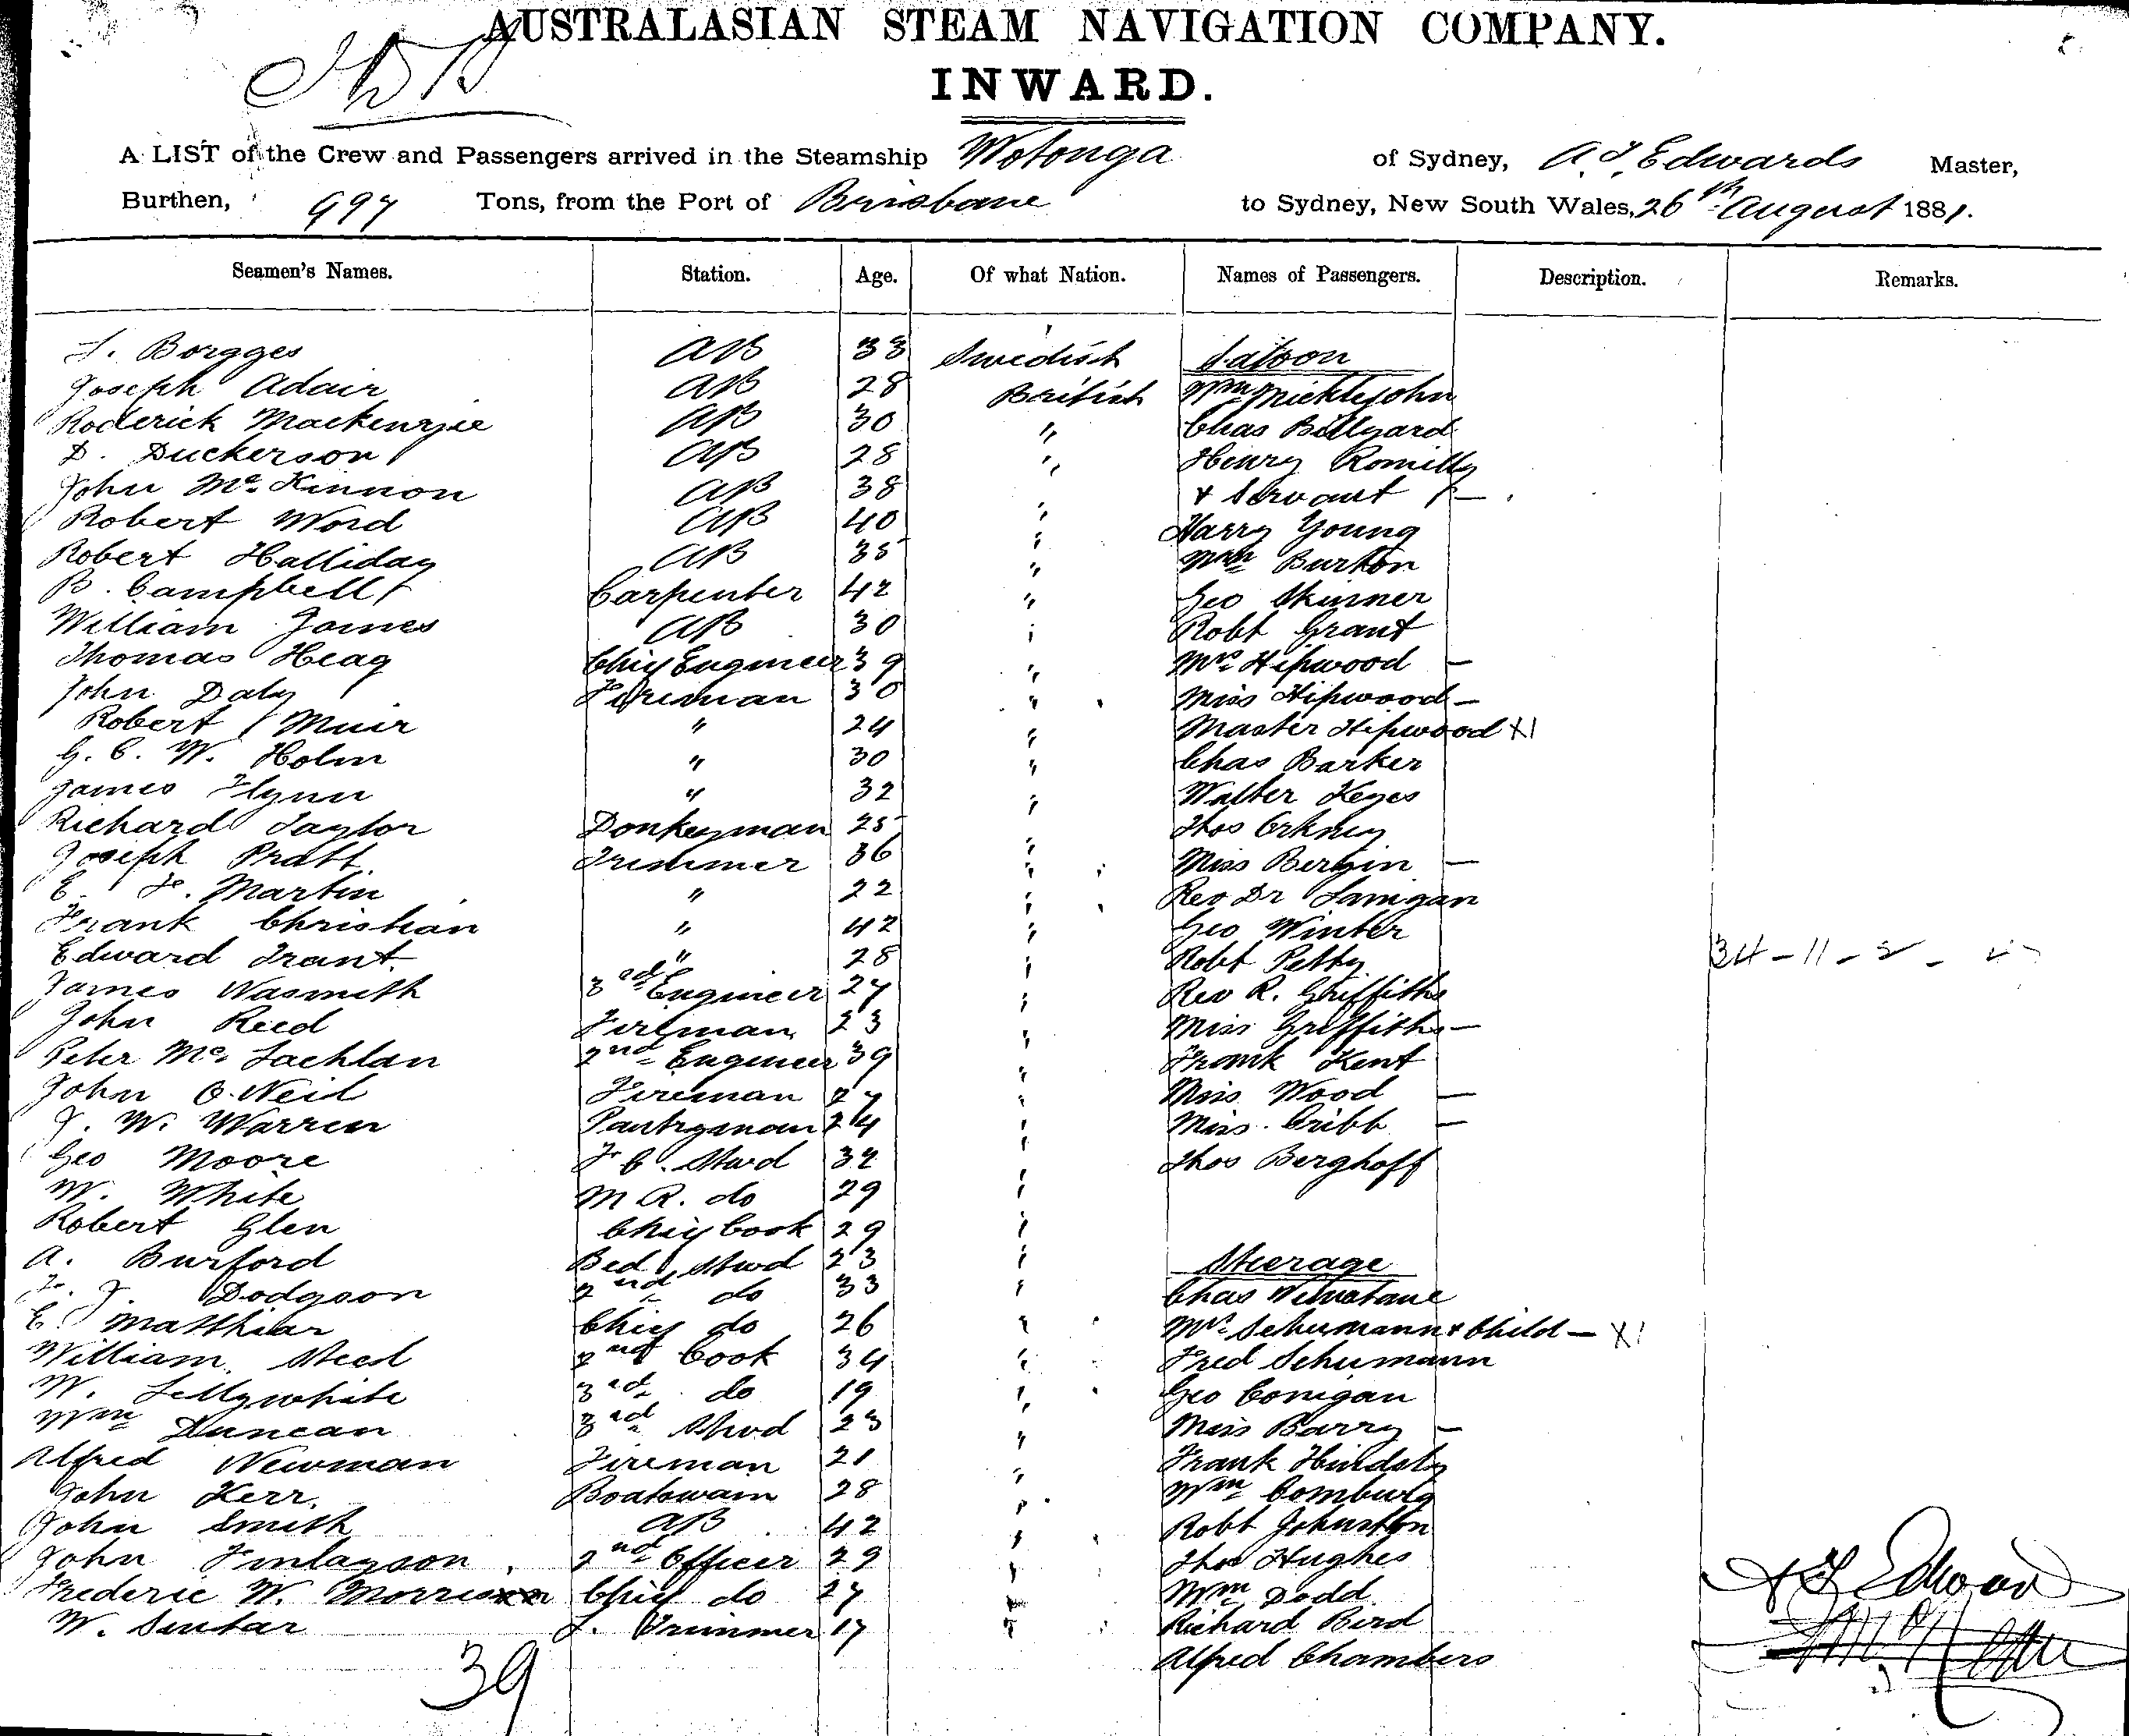 AUSTRALASIAN STEAM NAVIGATION COMPANY.
INWARD.
A LIST of the Crew and Passengers arrived in the Steamship Wotonga of Sydney, A. J. Edwards Master,
Burthen, 997 Tons, from the Port of Brisbane to Sydney, New South Wales, 26th August 1881.
Seamen's Names. Station. Age. Of what Nation. Names of Passengers. Description. Remarks.
Borgges AB 33 Swedish Saloon
Joseph Adair AB 28 British Wm Micklejohn
Roderick Mackenzie AB 30 " Chas Billyard
D. Duckerson AB 28 " Henry Romilly
John Mc Kinnon AB 38 " + Servant 1 —
Robert Word AB 40 " Harry Young
Robert Halliday AB 35 " Wm Burton
B. Campbell Carpenter 42 " Geo Skinner
William James AB 30 " Robt Grant
Thomas Heag Chief Engineer 39 " Mrs Hipwood —
John Daly Fireman 30 " Miss Hipwood —
Robert Muir " 24 " Master Hipwood X1
G. C. W. Holm " 30 " Chas Barker
James Flynn " 32 " Walter Keyes
Richard Taylor Donkeyman 25 " Thos Orkney
Joseph Pratt Trimmer 36 " Miss Bergin —
E. F. Martin " 22 " Rev Dr Lanigan
Frank Christian " 42 " Geo Winter
Edward Trant " 28 " Robt Petty 34 - 11 - 2 -
James Wasmith 3rd Engineer 27 " Rev R. Griffiths
John Reed Fireman 23 " Miss Griffiths —
Peter Mc Lachlan 2nd Engineer 39 " Frank Kent
John O. Neil Fireman 27 " Miss Wood —
J. W. Warren Pantryman 24 " Miss. Cribb —
Geo Moore F C. Stwd 32 " Thos Berghoff
W. White M R. do 29 "
Robert Glen Chief Cook 29 "
A. Burford Bed Stwd 23 " Steerage
F. J. Dodgson 2nd do 33 " Chas
E. Matthiar Chief do 26 " Mrs Schumann + Child — X1
William Steed 2nd Cook 34 " Fred Schumann
W. Lillywhite 3rd do 19 " Geo Conigan
Wm Duncan 3rd Stwd 23 " Miss Barry —
Alfred Newman Fireman 21 " Frank Hindsly
John Kerr. Boatswain 28 " Wm Comburg
John Smith AB 42 " Robt Johnston
John Finlayson 2nd Officer 29 " Thos Hughes
Frederic W. Morrison Chief do 27 " Wm Dodd
W. Sintar T. Trimmer 17 " Richard Bird
39 Alfred Chambers
A J Edwards